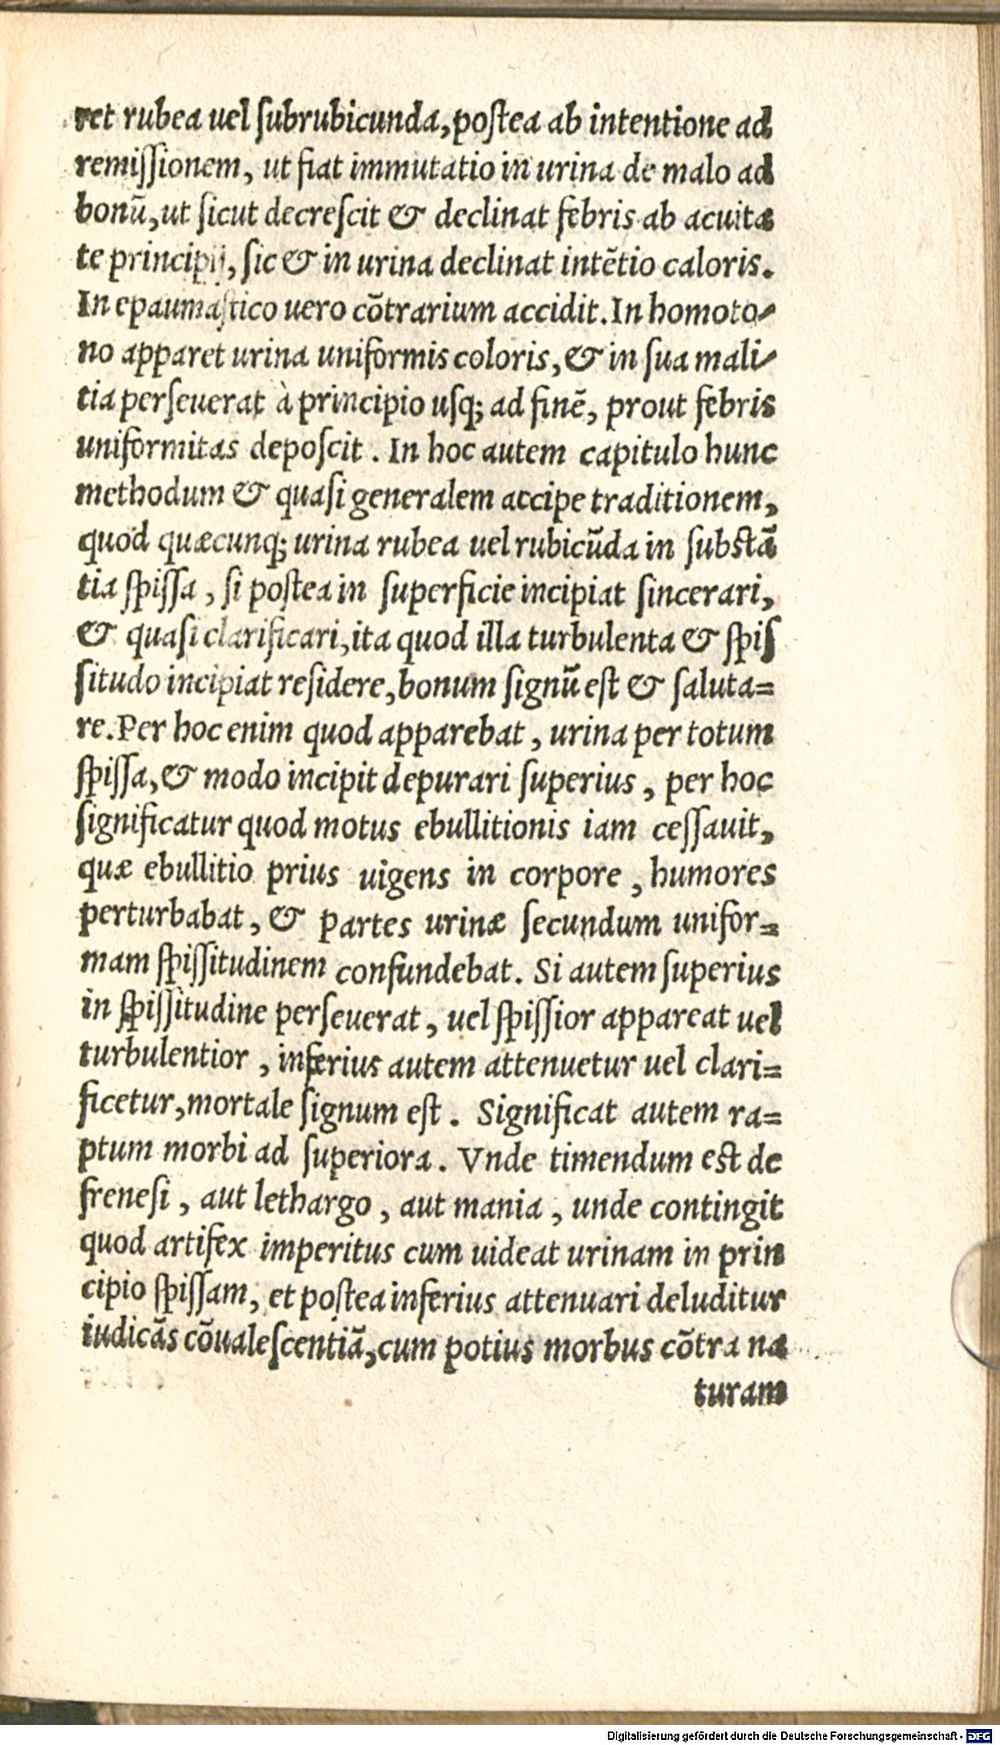 ret rubea uel ſubrubicunda, poſtea ab intentione ad
remiſſionem, ut fiat immutatio in urina de malo ad
bonū, ut ſicut decreſcit & declinat febris ab acuita
te principij, ſic & in urina declinat intētio caloris.
In epaumaſtico uero cōtrarium accidit. In homoto-
no apparet urina uniformis coloris, & in ſua mali-
tia perſeuerat à principio uſq; ad finē, prout febris
uniformitas depoſcit. In hoc autem capitulo hunc
methodum & quaſi generalem accipe traditionem,
quod quæcunq; urina rubea uel rubicūda in ſubſtā
tia ſpiſſa, ſi poſtea in ſuperficie incipiat ſincerari,
& quaſi clarificari, ita quod illa turbulenta & ſpiſ
ſitudo incipiat reſidere, bonum ſignū eſt & ſaluta=
re. Per hoc enim quod apparebat, urina per totum
ſpiſſa, & modo incipit depurari ſuperius, per hoc
ſignificatur quod motus ebullitionis iam ceſſauit,
quæ ebullitio prius uigens in corpore, humores
perturbabat, & partes urinæ ſecundum unifor=
mam ſpiſſitudinem confundebat. Si autem ſuperius
in ſpiſſitudine perſeuerat, uel ſpiſſior appareat uel
turbulentior, inferius autem attenuetur uel clari=
ficetur, mortale ſignum eſt. Significat autem ra=
ptum morbi ad ſuperiora. Vnde timendum eſt de
freneſi, aut lethargo, aut mania, unde contingit
quod artifex imperitus cum uideat urinam in prin
cipio ſpiſſam, et poſtea inferius attenuari deluditur
iudicās cōualeſcentiā, cum potius morbus cōtra na
turam
Digitalisierung gefördert durch die Deutsche Forschungsgemeinschaft - DFG